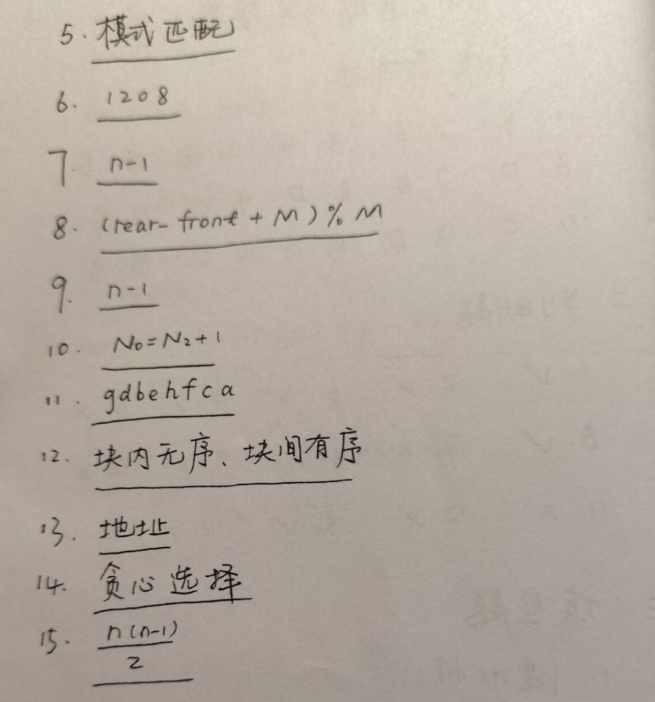 5. 模式匹配
6. 1208
7. n-1
8. (rear-front+M)%M
9. n-1
10. N₀=N₂+1
11. gdbehfca
12. 块内无序、块间有序
13. 地址
14. 贪心选择
15. n(n-1)/2